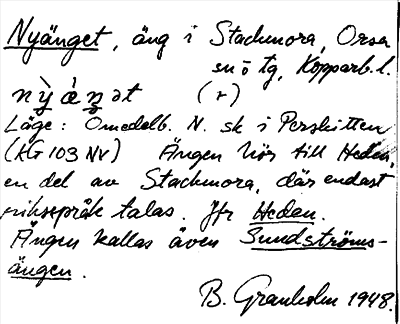 Nyänget, äng i Stackmora, Orsa
sn o tg, Kopparb. l.
nỳȧŋət (r)
Läge: Omedelb. N. sk i Perskitten
(KG 103 NV) Ängen hör till Heden,
en del av Stackmora, där endast
riksspråk talas. Jfr Heden.
Ängen kallas även Sundströms-
ängen.
B. Granholm 1948.